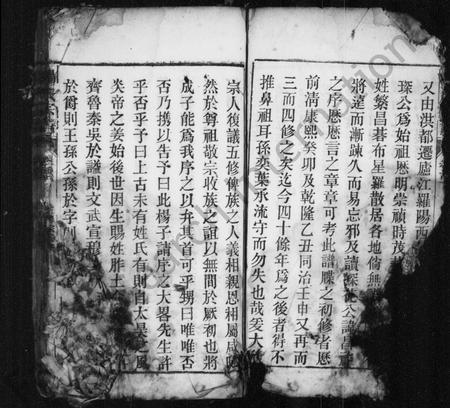 又由洪都遷廬江羅陽西
琛公爲始祖厯明崇禎時茂
姓繁昌碁布星羅散居各地倘無
將遠而漸疎久而易忘邪及讀
之序厯厯言之章章可考此譜牒之初修者厯
前淸康熙癸卯及乾隆乙丑同治壬申又再而
三而四修之矣迄今四十餘年爲之後者得不
推鼻祖耳孫奕葉承流守而勿失也哉爰大
宗人復議五修俾族之人義相親恩相屬咸
然於尊祖敬宗收族之誼以無間於厥初也將
成子能爲我序之以弁其首可乎甥曰唯唯否
否乃摭以告予曰此楊子請序之大畧先生許
乎否乎予曰上古未有姓氏有則自太昊
炎帝之姜始後世因生賜姓胙土
齊魯秦吳於謚則文武宣穆
於爵則王孫公孫於字則